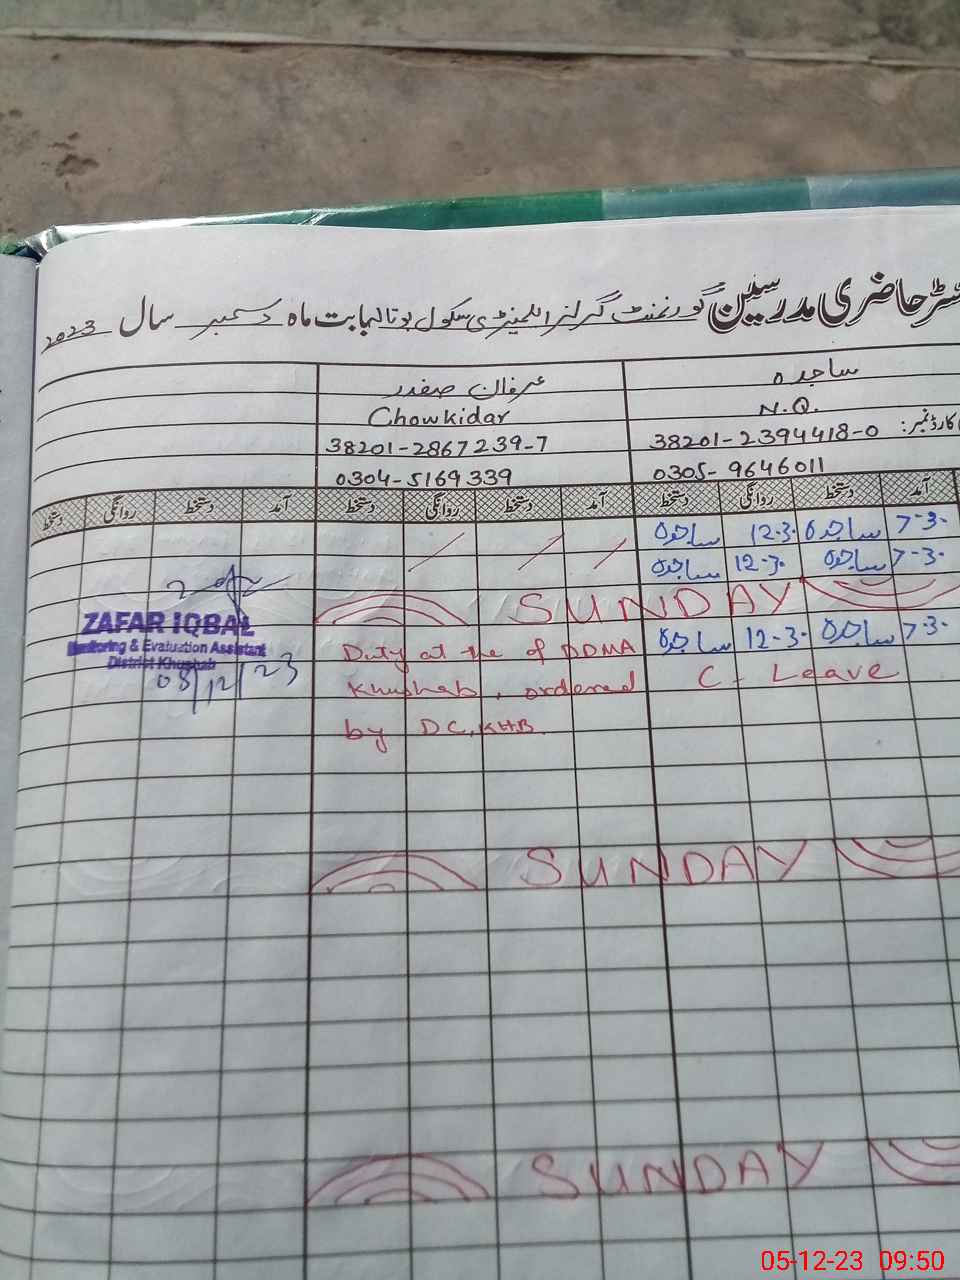 سٹر حاضری مدرسین گورنمنٹ گرلز ایلیمنٹری سکول بوتالہ بابت ماہ دسمبر سال 2023
ساجدہ عرفان صفدر
N.Q. Chowkidar
کارڈ نمبر: 38201-2394418-0 38201-2867239-7
0305-9646011 0304-5169339
آمد دستخط روانگی دستخط آمد دستخط روانگی دستخط آمد دستخط روانگی دستخط
7-3. ساجدہ 12-3. ساجدہ
7-3. ساجدہ 12-3. ساجدہ
SUNDAY
7-3. ساجدہ 12-3. ساجدہ
Duty at the of DDMA
C - Leave
Khushab, ordered
by DC, KHB.
ZAFAR IQBAL
Monitoring & Evaluation Assistant
District Khushab
/12/23
SUNDAY
SUNDAY
05-12-23 09:50